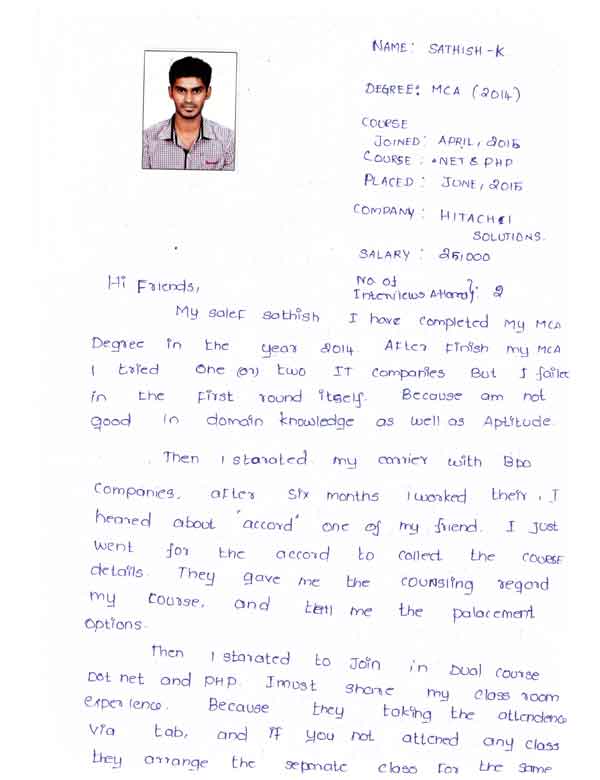 NAME: SATHISH-K
DEGREE: MCA (2014)
COURSE
JOINED: APRIL, 2015
COURSE: .NET & PHP
PLACED: JUNE, 2015
COMPANY: HITACHI
SOLUTIONS.
SALARY: 251000
No. of
Interviews : 2
Hi Friends,
My salef sathish I have completed My MCA
Degree in the year 2014. After finish my MCA
I tried one (or) two IT companies But I failed
in the first round itself. Because am not
good in domain knowledge as well as Aptitude.
Then I starated my carrier with BPO
Companies, after six months I worked their, I
heared about 'accord' one of my friend. I just
went for the accord to collect the course
details. They gave me the counsling regard
my course, and tell me the palacement
options.
Then I starated to join in Dual course
Dot net and PHP. I must share my class room
experience. Because they taking the attendence
Via tab, and if you not attened any class
they arrange the seperate class for the same